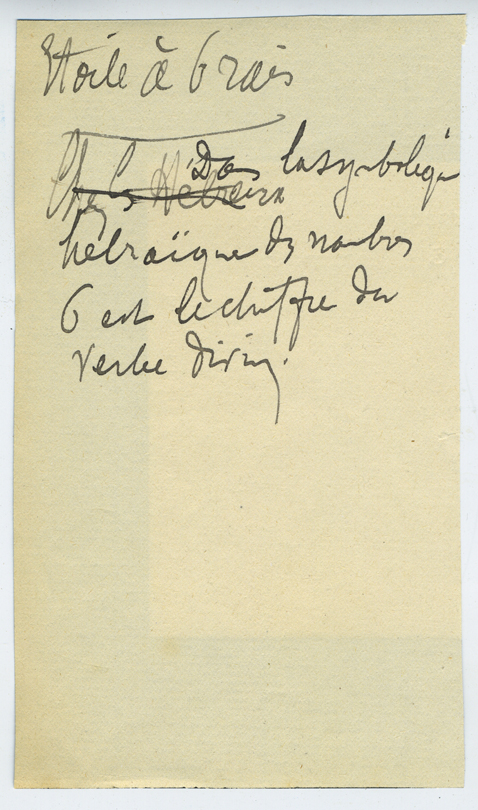 Etoile à 6 rais
Chez les Hébreux Dans la symbolique
hébraïque des nombres
6 est le chiffre du
Verbe divin.